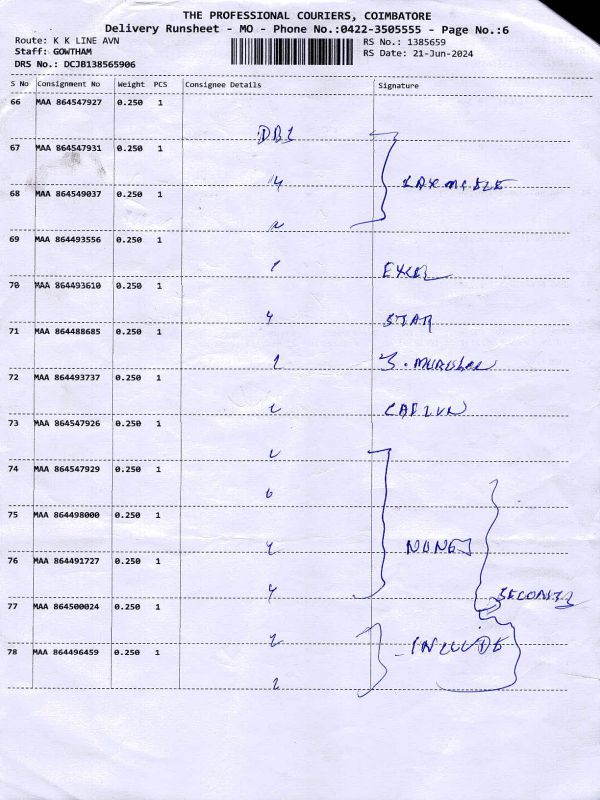 THE PROFESSIONAL COURIERS, COIMBATORE
Delivery Runsheet - MO - Phone No.:0422-3505555 - Page No.:6
Route: K K LINE AVN
RS No.: 1385659
Staff: GOWTHAM
RS Date: 21-Jun-2024
DRS No.: DCJB138565906
S No Consignment No Weight PCS Consignee Details Signature
66 MAA 864547927 0.250 1
DB1
67 MAA 864547931 0.250 1
4
68 MAA 864549037 0.250 1
69 MAA 864493556 0.250 1
1 EXCEL
70 MAA 864493610 0.250 1
4 STAR
71 MAA 864488685 0.250 1
1
72 MAA 864493737 0.250 1
73 MAA 864547926 0.250 1
74 MAA 864547929 0.250 1
6
75 MAA 864498000 0.250 1
4
76 MAA 864491727 0.250 1
4
77 MAA 864500024 0.250 1
2
78 MAA 864496459 0.250 1
2